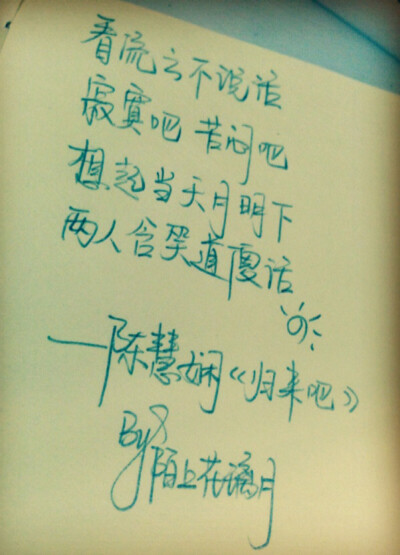 看流云不说话
寂寞吧 苦闷吧
想起当天月明下
两人含笑道傻话
——陈慧娴《归来吧》
By
陌上花璃月